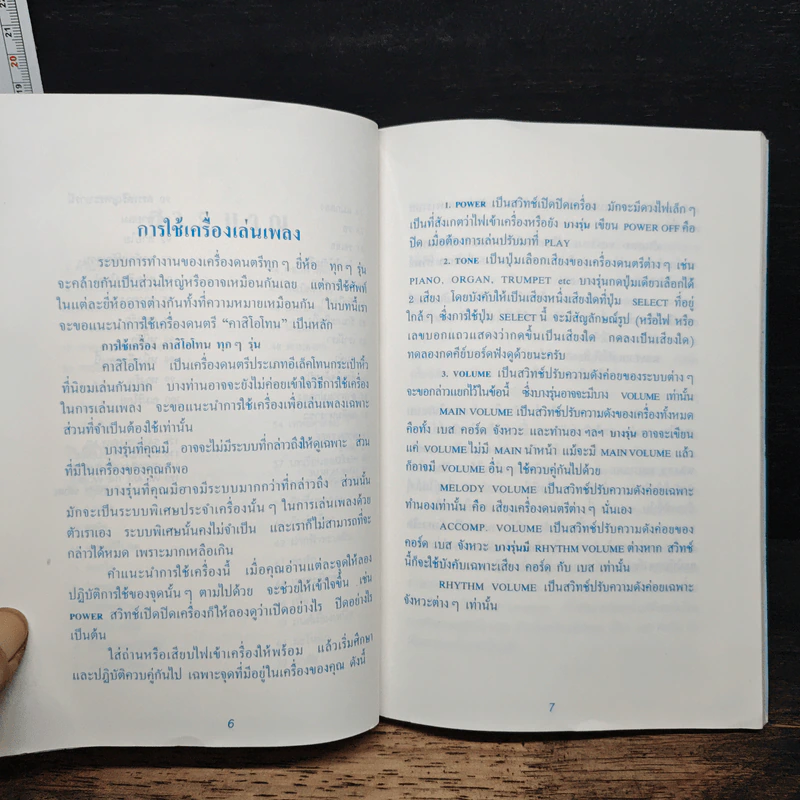 การใช้เครื่องเล่นเพลง
ระบบการทำงานของเครื่องดนตรีทุกๆ ยี่ห้อ ทุกๆ รุ่น
จะคล้ายกันเป็นส่วนใหญ่หรืออาจเหมือนกันเลย แต่การใช้ศัพท์
ในแต่ละยี่ห้ออาจต่างกันทั้งที่ความหมายเหมือนกัน ในบทนี้เรา
จะขอแนะนำการใช้เครื่องดนตรี “คาสิโอโทน” เป็นหลัก
การใช้เครื่อง คาสิโอโทน ทุกๆ รุ่น
คาสิโอโทน เป็นเครื่องดนตรีประเภทอีเล็คโทนกระเป๋าหิ้ว
ที่นิยมเล่นกันมาก บางท่านอาจจะยังไม่ค่อยเข้าใจวิธีการใช้เครื่อง
ในการเล่นเพลง จะขอแนะนำการใช้เครื่องเพื่อเล่นเพลงเฉพาะ
ส่วนที่จำเป็นต้องใช้เท่านั้น
บางรุ่นที่คุณมี อาจจะไม่มีระบบที่กล่าวถึงให้ดูเฉพาะ ส่วน
ที่มีในเครื่องของคุณก็พอ
บางรุ่นที่คุณมีอาจมีระบบมากกว่าที่กล่าวถึง ส่วนนั้น
มักจะเป็นระบบพิเศษประจำเครื่องนั้นๆ ในการเล่นเพลงด้วย
ตัวเราเอง ระบบพิเศษนั้นคงไม่จำเป็น และเราก็ไม่สามารถที่จะ
กล่าวได้หมด เพราะมากเหลือเกิน
คำแนะนำการใช้เครื่องนี้ เมื่อคุณอ่านแต่ละจุดให้ลอง
ปฏิบัติการใช้ของจุดนั้นๆ ตามไปด้วย จะช่วยให้เข้าใจขึ้น เช่น
POWER สวิทช์เปิดปิดเครื่องก็ให้ลองดูว่าเปิดอย่างไร ปิดอย่างไร
เป็นต้น
ใส่ถ่านหรือเสียบไฟเข้าเครื่องให้พร้อม แล้วเริ่มศึกษา
และปฏิบัติควบคู่กันไป เฉพาะจุดที่มีอยู่ในเครื่องของคุณ ดังนี้
6
1. POWER เป็นสวิทช์เปิดปิดเครื่อง มักจะมีดวงไฟเล็กๆ
เป็นที่สังเกตว่าไฟเข้าเครื่องหรือยัง บางรุ่น เขียน POWER OFF คือ
ปิด เมื่อต้องการเล่นปรับมาที่ PLAY
2. TONE เป็นปุ่มเลือกเสียงของเครื่องดนตรีต่างๆ เช่น
PIANO, ORGAN, TRUMPET etc บางรุ่นกดปุ่มเดียวเลือกได้
2 เสียง โดยบังคับให้เป็นเสียงหนึ่งเสียงใดที่ปุ่ม SELECT ที่อยู่
ใกล้ๆ ซึ่งการใช้ปุ่ม SELECT นี้ จะมีสัญลักษณ์รูป (หรือไฟ หรือ
เลขบอกแถวแสดงว่ากดขึ้นเป็นเสียงใด กดลงเป็นเสียงใด)
ทดลองกดคีย์บอร์ดฟังดูด้วยนะครับ
3. VOLUME เป็นสวิทช์ปรับความดังค่อยของระบบต่างๆ
จะขอกล่าวแยกไว้ในข้อนี้ ซึ่งบางรุ่นอาจจะมีบาง VOLUME เท่านั้น
MAIN VOLUME เป็นสวิทช์ปรับความดังของเครื่องทั้งหมด
คือทั้ง เบส คอร์ด จังหวะ และทำนอง ฯลฯ บางรุ่น อาจจะเขียน
แค่ VOLUME ไม่มี MAIN นำหน้า แม้จะมี MAIN VOLUME แล้ว
ก็อาจมี VOLUME อื่นๆ ใช้ควบคู่กันไปด้วย
MELODY VOLUME เป็นสวิทช์ปรับความดังค่อยเฉพาะ
ทำนองเท่านั้น คือ เสียงเครื่องดนตรีต่างๆ นั่นเอง
ACCOMP. VOLUME เป็นสวิทช์ปรับความดังค่อยของ
คอร์ด เบส จังหวะ บางรุ่นมี RHYTHM VOLUME ต่างหาก สวิทช์
นี้ก็จะใช้บังคับเฉพาะเสียง คอร์ด กับ เบส เท่านั้น
RHYTHM VOLUME เป็นสวิทช์ปรับความดังค่อยเฉพาะ
จังหวะต่างๆ เท่านั้น
7
21
20
19